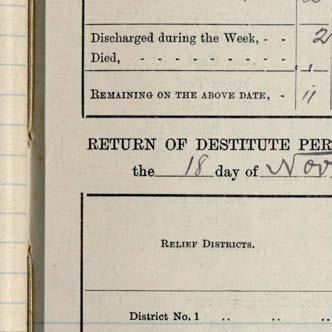 Discharged during the Week, - - 2
Died, - - - - - - - - - 1
REMAINING ON THE ABOVE DATE, - 11
RETURN OF DESTITUTE PER
the 18 day of Nov
RELIEF DISTRICTS.
District No. 1 .. .. ..